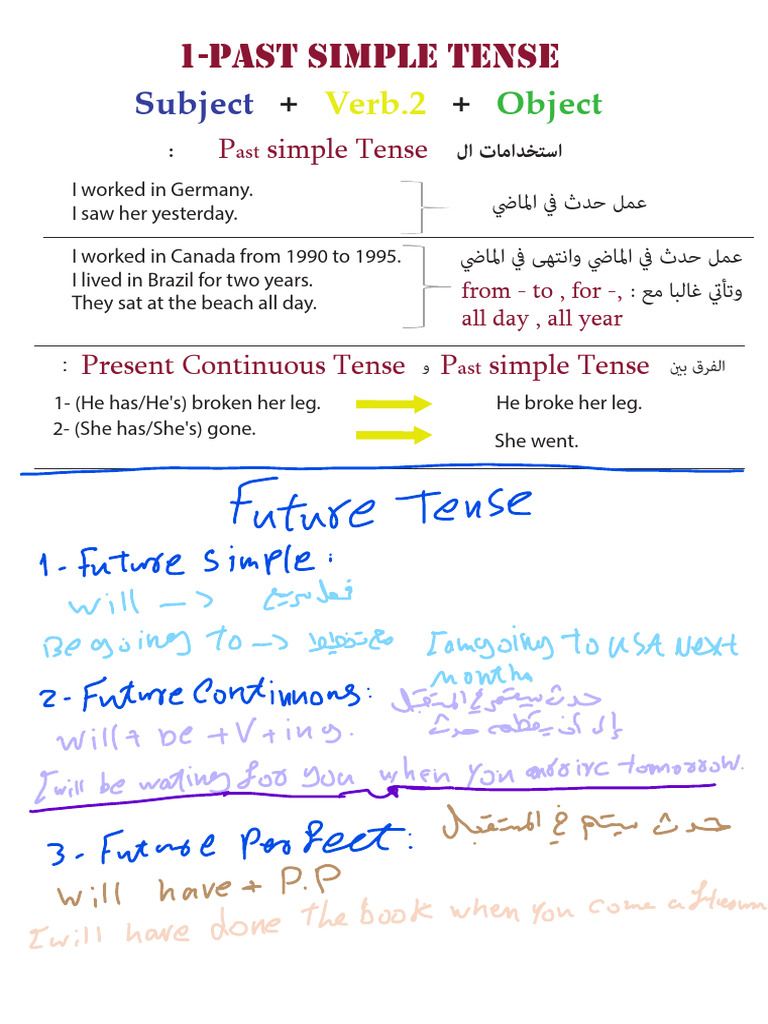 1-PAST SIMPLE TENSE
Subject + Verb.2 + Object
استخدامات ال Past simple Tense :
I worked in Germany.
I saw her yesterday.
عمل حدث في الماضي
I worked in Canada from 1990 to 1995.
I lived in Brazil for two years.
They sat at the beach all day.
عمل حدث في الماضي وانتهى في الماضي
وتأتي غالبا مع : from - to , for -,
all day , all year
الفرق بين Past simple Tense و Present Continuous Tense :
1- (He has/He's) broken her leg. He broke her leg.
2- (She has/She's) gone. She went.
Future Tense
1- Future simple:
will --> فعل سريع
Be going to --> مع تخطيط I am going to USA Next
months
2- Future Continuons: حدث سيستمر في المستقبل
will + be + V + ing. إلى أن يقطعه حدث
I will be wating for you when you arrive tomorrow.
3- Future Perfect: حدث سيتم في المستقبل
will have + P.P
I will have done the book when you come